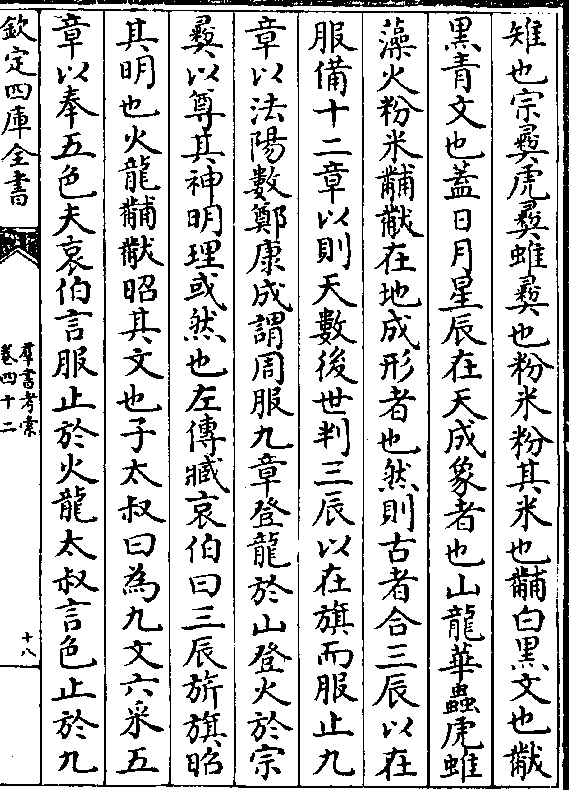 雉也宗彝虎彝蜼彝也粉米粉其米也黼白黑文也黻
黑青文也蓋日月星辰在天成象者也山龍華蟲虎蜼
藻火粉米黼黻在地成形者也然則古者合三辰以在
服備十二章以則天數後世判三辰以在旗而服止九
章以法陽數鄭康成謂周服九章登龍於山登火於宗
彝以尊其神明理或然也左傳臧哀伯曰三辰旂旗昭
其明也火龍黼黻昭其文也子太叔曰為九文六采五
章以奉五色夫哀伯言服止於火龍太叔言色止於九
欽定四庫全書
羣書考索
卷四十二
十八